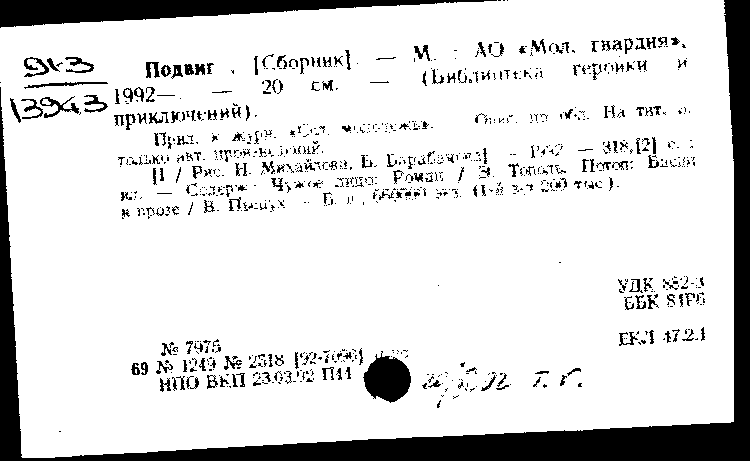 91-3
13943
Подвиг : [Сборник]. — М. : АО «Мол. гвардия»,
1992—. — 20 см. — (Библиотека героики и
приключений).
Прил. к журн. «Сел. молодежь». Опис. по обл. На тит. л.
только авт. произведений.
[1 / Рис. Н. Михайлова, Б. Барабанова] — 1992 — 318,[2] с. :
ил. — Содерж.: Чужое лицо: Роман / Э. Тополь. Потоп: Басни
в прозе / В. Пьецух. — Б. ц., 650000 экз. (1-й з-д 200 тыс.).
УДК 882-3
ББК 84Р6
№ 7975
ЕКЛ 47.2.1
69 № 1249 № 2518 [92-7090]
НПО ВКП 23.03.92 П11
92 Т. г.